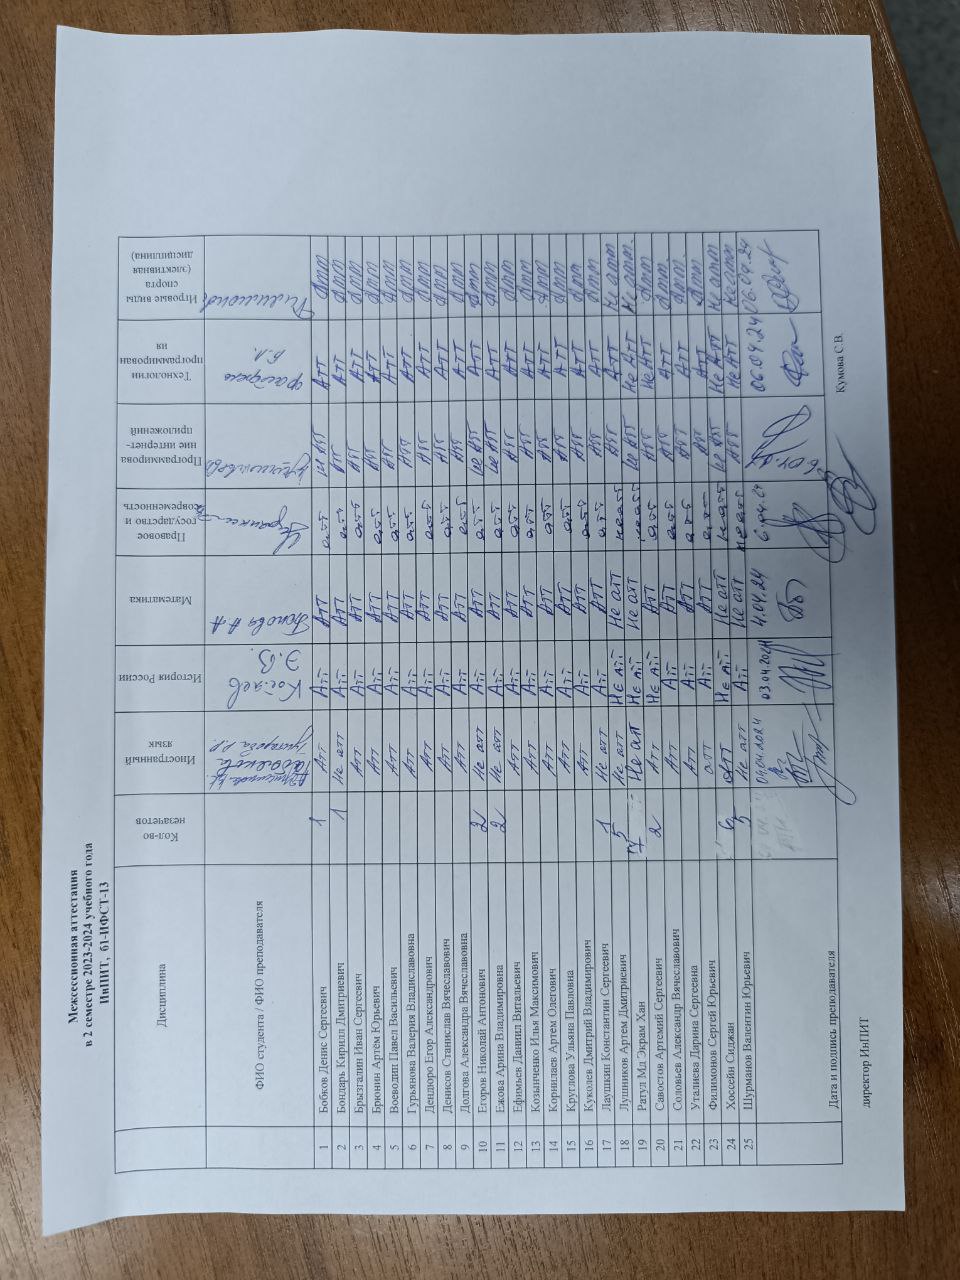 Межсессионная аттестация
в 2 семестре 2023-2024 учебного года
ИнПИТ, б1-ИФСТ-13
Дисциплина Кол-во незачетов Иностранный язык История России Математика Правовое государство и современность Программирова ние интернет- приложений Технологии программирован ия Игровые виды спорта (элективная дисциплина)
ФИО студента / ФИО преподавателя Э.В. Попова А.А
1 Бобков Денис Сергеевич 1 Атт Атт Атт атт не Атт Атт Атт
2 Бондарь Кирилл Дмитриевич 1 Не атт Атт Атт атт Атт Атт Атт
3 Брызгалин Иван Сергеевич Атт Атт Атт атт Атт Атт Атт
4 Брюнин Артём Юрьевич Атт Атт Атт атт Атт Атт Атт
5 Воеводин Павел Васильевич Атт Атт Атт атт Атт Атт Атт
6 Гурьянова Валерия Владиславовна Атт Атт Атт атт Атт Атт Атт
7 Дендюро Егор Александрович Атт Атт Атт атт Атт Атт Атт
8 Денисов Станислав Вячеславович Атт Атт Атт атт Атт Атт Атт
9 Долгова Александра Вячеславовна Атт Атт Атт атт Атт Атт Атт
10 Егоров Николай Антонович 2 Не атт Атт Атт атт не Атт Атт Атт
11 Ежова Арина Владимировна 2 Не атт Атт Атт атт не Атт Атт Атт
12 Ефимьев Даниил Витальевич Атт Атт Атт атт Атт Атт Атт
13 Козынченко Илья Максимович Атт Атт Атт атт Атт Атт Атт
14 Корнилаев Артем Олегович Атт Атт Атт атт Атт Атт Атт
15 Круглова Ульяна Павловна Атт Атт Атт атт Атт Атт Атт
16 Куколев Дмитрий Владимирович Атт Атт Атт атт Атт Атт Атт
17 Лаушкин Константин Сергеевич 1 Не атт Атт Атт атт Атт Атт Атт
18 Лушников Артем Дмитриевич 5 Не атт Не атт Не атт не атт Атт Атт Не атт
19 Ратул Мд Экрам Хан 7 Не атт Не атт Не атт не атт не Атт Не Атт Не атт.
20 Савостов Артемий Сергеевич 2 Атт Не атт Атт атт Атт Не Атт Атт
21 Соловьев Александр Вячеславович Атт Атт Атт атт Атт Атт Атт.
22 Уталиева Дарина Сергеевна Атт Атт Атт атт Атт Атт Атт.
23 Филимонов Сергей Юрьевич атт Атт Атт Атт Атт Атт
24 Хоссейн Сиджан 6 Атт Не атт Не атт не атт не Атт Не Атт Не атт
25 Шурманов Валентин Юрьевич 5 Не атт Атт Не атт не атт Атт Не Атт Не атт
Дата и подпись преподавателя 04.04.2024 03.04.2024 4.04.24 6.04.24 06.04.24 06.04.24 06.04.24
директор ИнПИТ Кумова С.В.